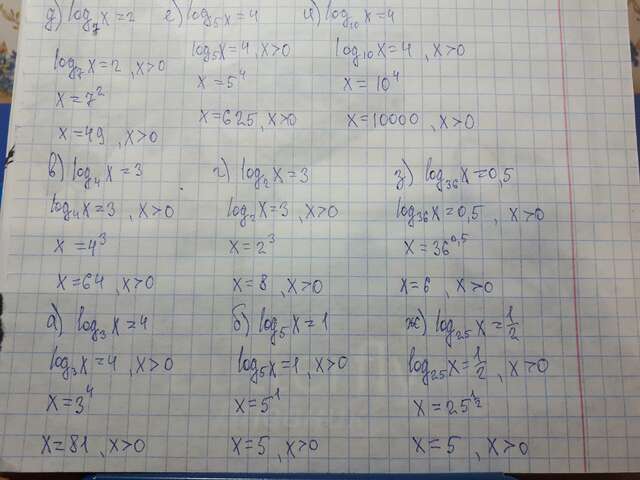 д) log₇x=2 е) log₅x=4 и) log₁₀x=4
log₇x=2 , x>0 log₅x=4, x>0 log₁₀x=4 , x>0
x=7² x=5⁴ x=10⁴
x=49, x>0 x=625, x>0 x=10000 , x>0
в) log₄x=3 г) log₂x=3 з) log₃₆x=0,5
log₄x=3 , x>0 log₂x=3 , x>0 log₃₆x=0,5 , x>0
x=4³ x=2³ x=36^0,5
x=64, x>0 x=8 , x>0 x=6 , x>0
а) log₃x=4 б) log₅x=1 ж) log₂₅x=1/2
log₃x=4 , x>0 log₅x=1, x>0 log₂₅x=1/2 , x>0
x=3⁴ x=5¹ x=25^1/2
x=81 , x>0 x=5 , x>0 x=5 , x>0